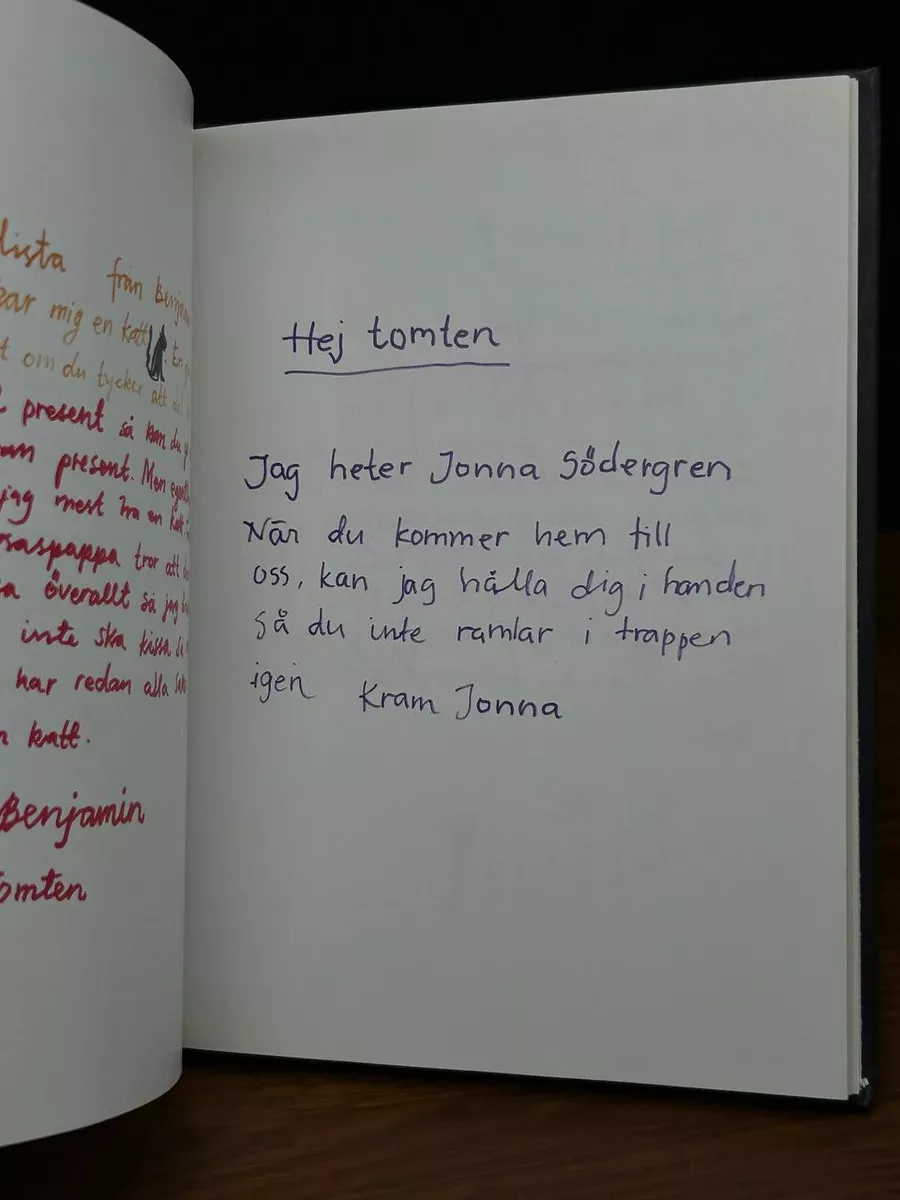 lista från
mig en katt.
om du tycker att
present så kan du
present. Men
jag mest ha en katt.
tror att
överallt så jag
inte ska kissa
har redan alla
katt.
Benjamin
Tomten
Hej tomten
Jag heter Jonna Södergren
När du kommer hem till
oss, kan jag hålla dig i handen
så du inte ramlar i trappen
igen Kram Jonna